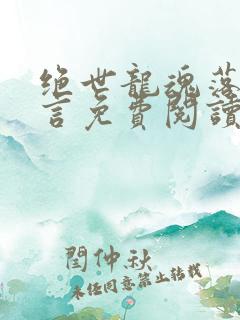 绝世龍魂落
言免費閱讀
閆仲秋
未經同意禁止轉載